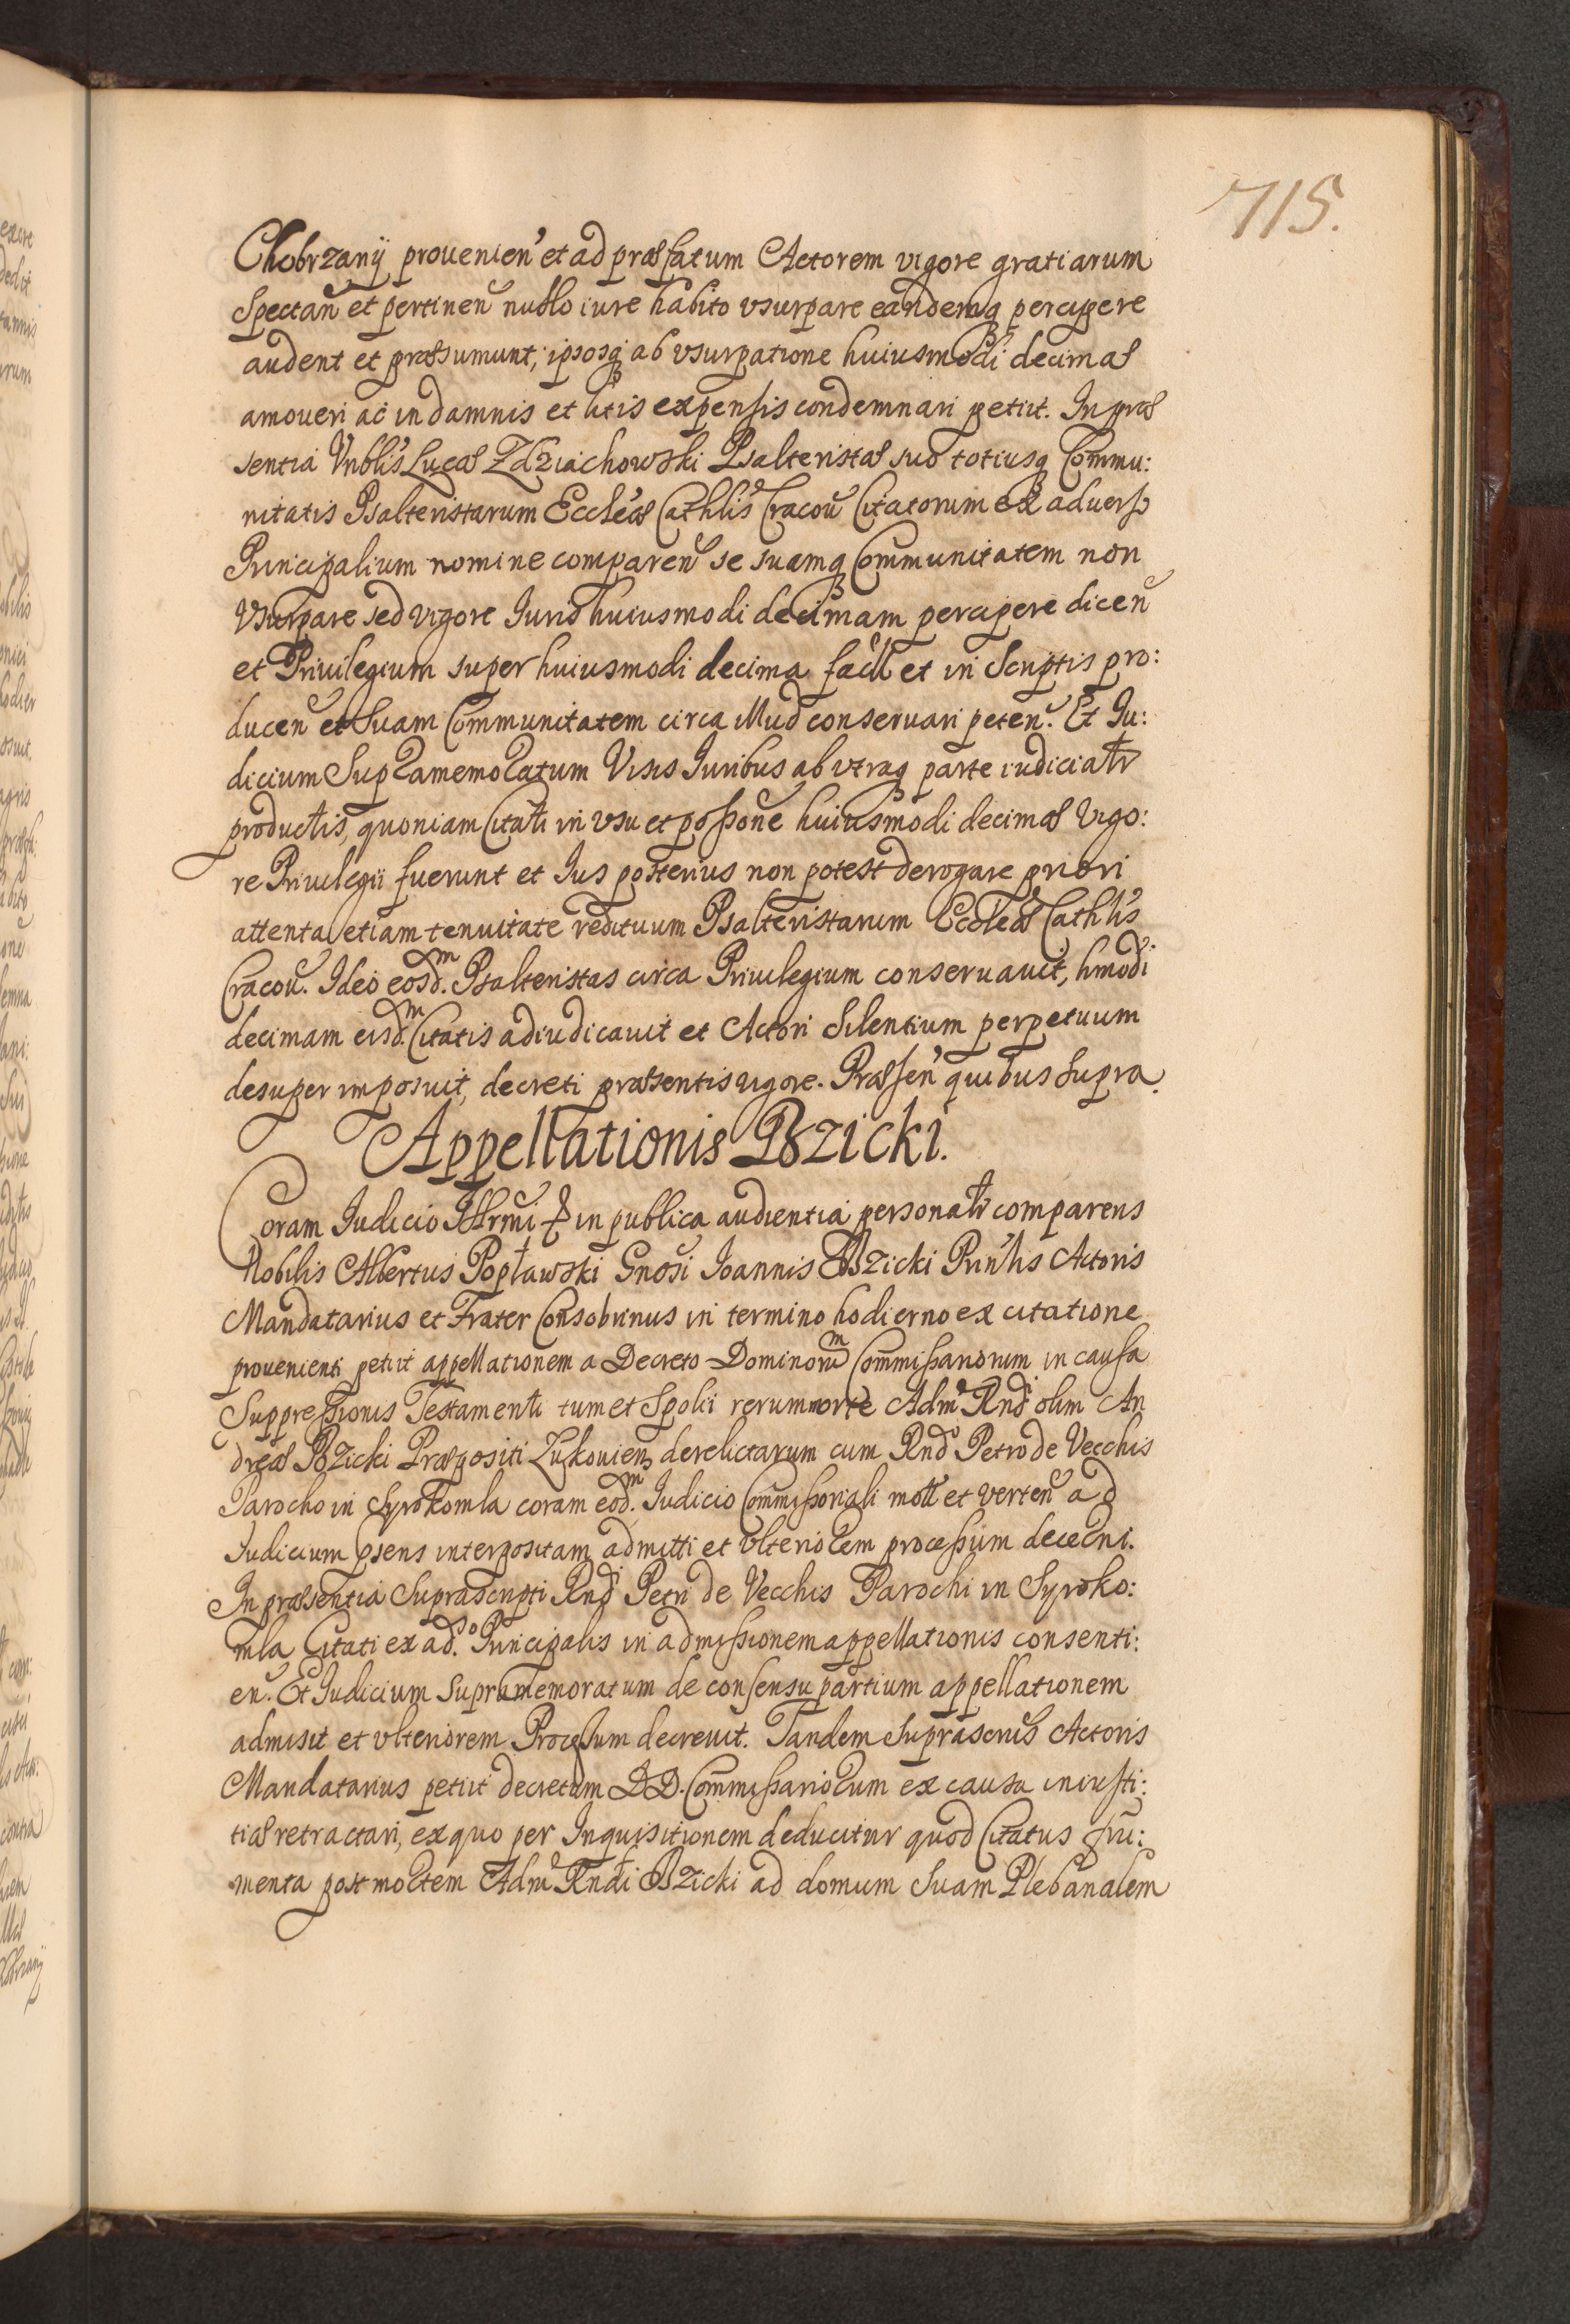 715.
Chobrzanÿ prouenien' et ad præfatum Actorem vigore gratiarum
Spectan̄ et pertinen̄ nullo iure habito vsurpare eandemq percipere
audent et præsumunt, ipsosq ab vsurpatione huiusmodi decimæ
amoueri ac in damnis et litis expensis condemnari petiit. In præ
sentia Vnblis Lucæ Zdziachowski Psalteristæ suo totiusq Commu:
nitatis Psalteristarum Eccleæ Cathlis Cracou̅ Citatorum ex aduerso
Principalium nomine comparen̄ se suamq Communitatem non
vsurpare sed vigore Iuris huiusmodi decimam percipere dicen̄
et Priuilegium super huiusmodi decima fact et in Scriptis pro:
ducen̄ et Suam Communitatem circa illud conseruari peten̄. Et Iu:
dicium Supramemoratum Visis Iuribus ab vtraq parte iudicialr
productis, quoniam Citati in vsu et possone huiusmodi decimæ vigo:
re Priuilegii fuerunt et Ius posterius non potest derogare priori
attenta etiam tenuitate redituum Psalteristarum Eccleæ Cathlis
Cracou̅. Ideo eosd.m Psalteristas circa Priuilegium conseruauit, hmodi
decimam eisd.m Citatis adiudicauit et Actori Silentium perpetuum
desuper imposuit, decreti præsentis vigore. Præsen' quibus supra.
Appellationis Bzicki.
Coram Iudicio Illrmi & in publica audientia personalr comparens
Nobilis Albertus Popławski Gnosi Ioannis Bzicki Prin'lis Actoris
Mandatarius et Frater Consobrinus in termino hodierno ex citatione
prouenienti petiit appellationem a Decreto Dominorum Commissariorum in causa
Suppressionis Testamenti tum et Spolii rerum morte Adm Rndi olim An
dreæ Bzicki Præpositi Łukouien derelictarum cum Rndo Petro de Vecchis
Parocho in Syrokomla coram eod.m Iudicio Commissoriali mott et verten̄ ad
Iudicium psens interpositam admitti et vlteriorem processum decerni.
In præsentia Suprascripti Rndi Petri de Vecchis Parochi in Syroko:
mla Citati ex ad.so Principalis in admissionem appellationis consenti:
en̄. Et Iudicium Supramemoratum de consensu partium appellationem
admisit et vlteriorem Processum decreuit. Tandem Suprascrits Actoris
Mandatarius petiit decretum DD. Commissariorum ex causa iniusti:
tiæ retractari, ex quo per Inquisitionem deducitur quod Citatus fru:
menta post mortem Adm Rndi Bzicki ad domum Suam Plebanalem